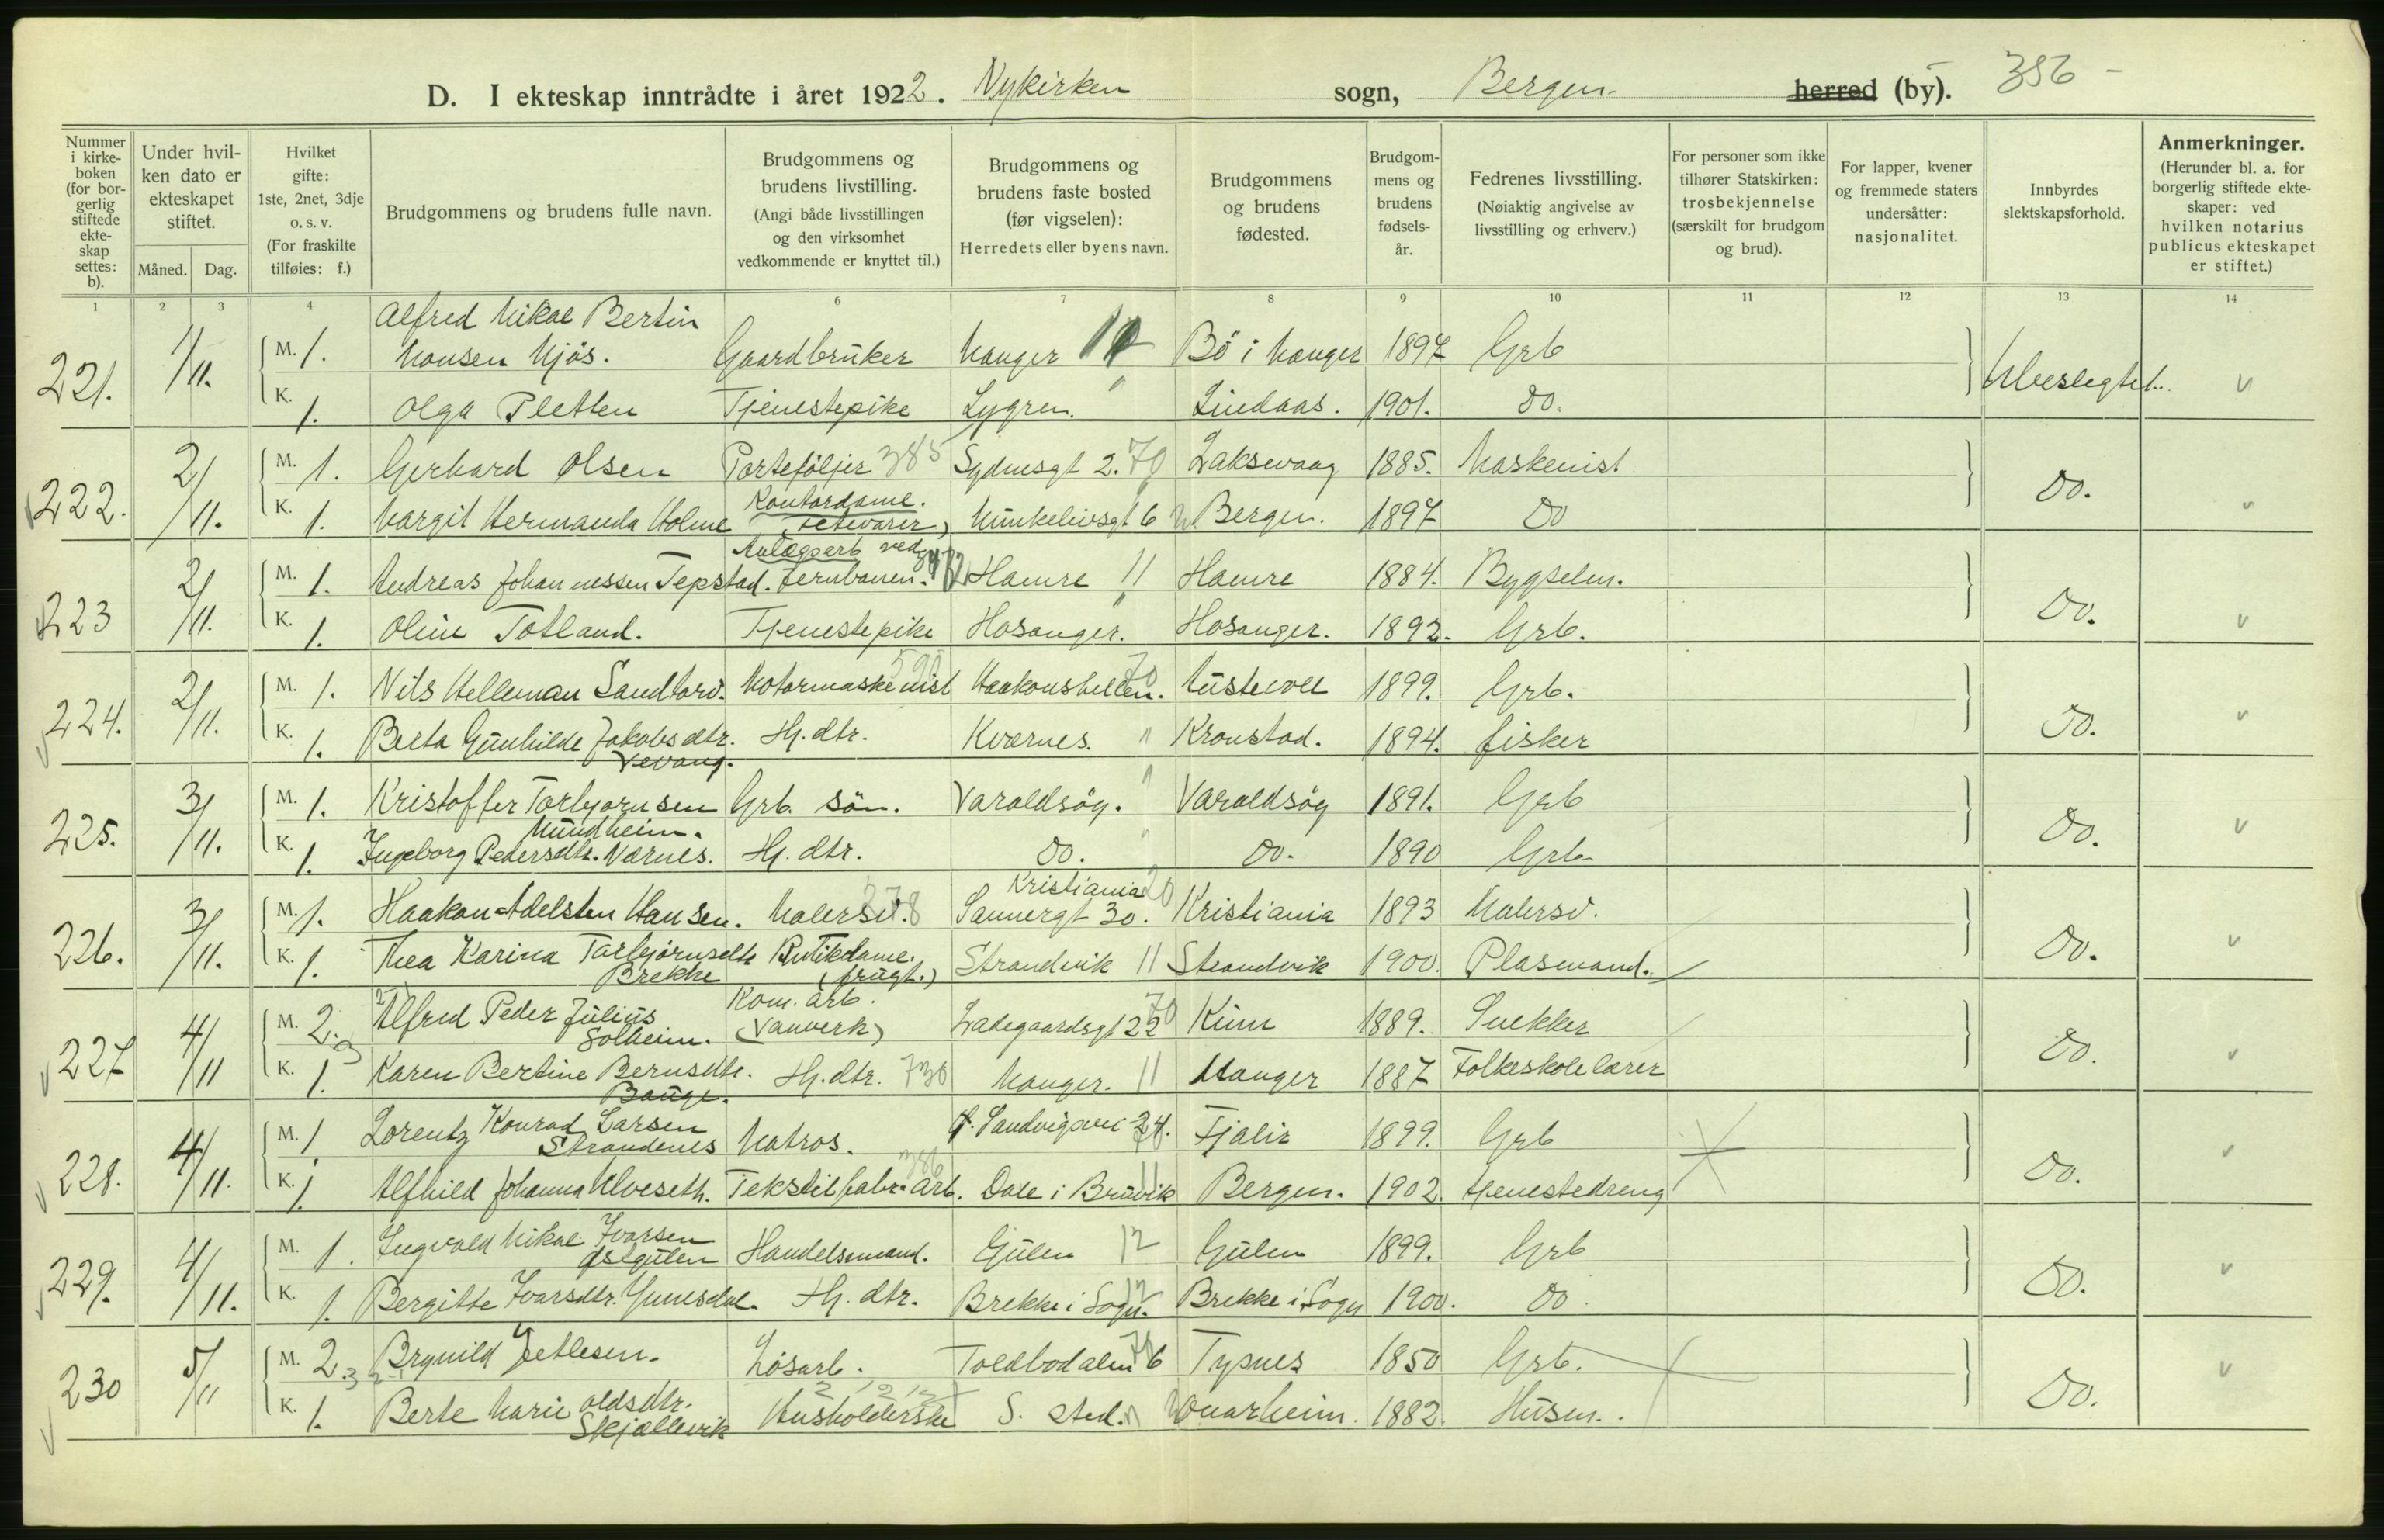 D. I ekteskap inntrådte i året 1922. Nykirken sogn, Bergen herred (by). 356 -
Nummer i kirkeboken (for borgerlig stiftede ekteskap settes: b).
Under hvilken dato er ekteskapet stiftet.
Måned. Dag.
Hvilket gifte: 1ste, 2net, 3dje o. s. v. (For fraskilte tilføies: f.)
Brudgommens og brudens fulle navn.
Brudgommens og brudens livstilling. (Angi både livsstillingen og den virksomhet vedkommende er knyttet til.)
Brudgommens og brudens faste bosted (før vigselen): Herredets eller byens navn.
Brudgommens og brudens fødested.
Brudgommens og brudens fødselsår.
Fedrenes livsstilling. (Nøiaktig angivelse av livsstilling og erhverv.)
For personer som ikke tilhører Statskirken: trosbekjennelse (særskilt for brudgom og brud).
For lapper, kvener og fremmede staters undersåtter: nasjonalitet.
Innbyrdes slektskapsforhold.
Anmerkninger. (Herunder bl. a. for borgerlig stiftede ekteskaper: ved hvilken notarius publicus ekteskapet er stiftet.)
1 2 3 4 6 7 8 9 10 11 12 13 14
Alfred Mikal Bertin
221. 1/11. M. 1. Monsen Mjøs. Gaardbruker Manger Bö i Manger 1897 Grb Ubeslegtet.
K. 1. Olga Pletten Tjenestepike Lygren. " Lindaas. 1901. Do.
222. 2/11. M. 1. Gerhard Olsen Porteföljer 385 Sydnesgt 2. 70 Laksevaag 1885. Maskinist Do.
Kontordame.
K. 1. Margit Hermanda Holme Munkelivsgt 6 Bergen. 1897 Do
Anlægsarb ved
223 2/11. M. 1. Andreas Johannessen Tepstad. Jernbanen. Hamre 11 Hamre 1884. Bygselm. Do.
K. 1. Oline Totland. Tjenestepike Hosanger. " Hosanger. 1892. Grb.
224. 2/11. M. 1. Nils Helleman Sandtorv. Motormaskinist Haakonshellen. 70 Austevoll 1899. Grb. Do.
K. 1. Berta Gunhilde Jakobsdtr. Hj. dtr. Kværnes. " Kronstad. 1894. fisker
Vevang.
225. 3/11. M. 1. Kristoffer Torbjørnsen Grb. sön. Varaldsöy. " Varaldsöy 1891. Grb Do.
Mundheim.
K. 1. Ingeborg Pedersdtr. Værnes. Hj. dtr. Do. " Do. 1890 Grb
Kristiania 20
226. 3/11. M. 1. Haakon Adelsten Hansen. Malersv. 278 Sannergt 30. Kristiania 1893 Malersv. Do.
K. 1. Thea Karina Torbjørnsdtr Butikdame. Strandvik 11 Strandvik 1900. Plasmand.
Brekke (frugt.)
Kom. arb.
227 4/11 M. 2. Alfred Peder Julius (Vanverk) Ladegaardsgt 22 70 Kinn 1889. Snekker Do.
Solheim.
K. 1. Karen Bertine Bernsdtr. Hj. dtr. 730 Manger. 11 Manger 1887 Folkeskolelærer
Bauge.
228. 4/11. M. 1 Lorentz Konrad Larsen Matros. Sandvigsvei 24. Fjaler 1899. Grb Do.
Strandenes
K. 1. Alfhild Johanna Ulveseth. Tekstilfabr. arb. 386 Dale i Bruvik 11 Bergen. 1902. tjenestedreng
229. 4/11. M. 1. Ingvald Mikal Ivarsen Handelsmand. Gulen 12 Gulen 1899. Grb Do.
Østgulen
K. 1. Bergitte Ivarsdtr. Ynnesdal. Hj. dtr. Brekke i Sogn. 12 Brekke i Sogn 1900. Do.
230 5/11 M. 2. Brynild Jetlesen. Løsarb. Toldbodalm 6 Tysnes 1850 Grb. Do.
K. 1. Berte Marie Oldsdtr. Husholderske S. sted. Kvarheim. 1882. Husm.
Skjællevik